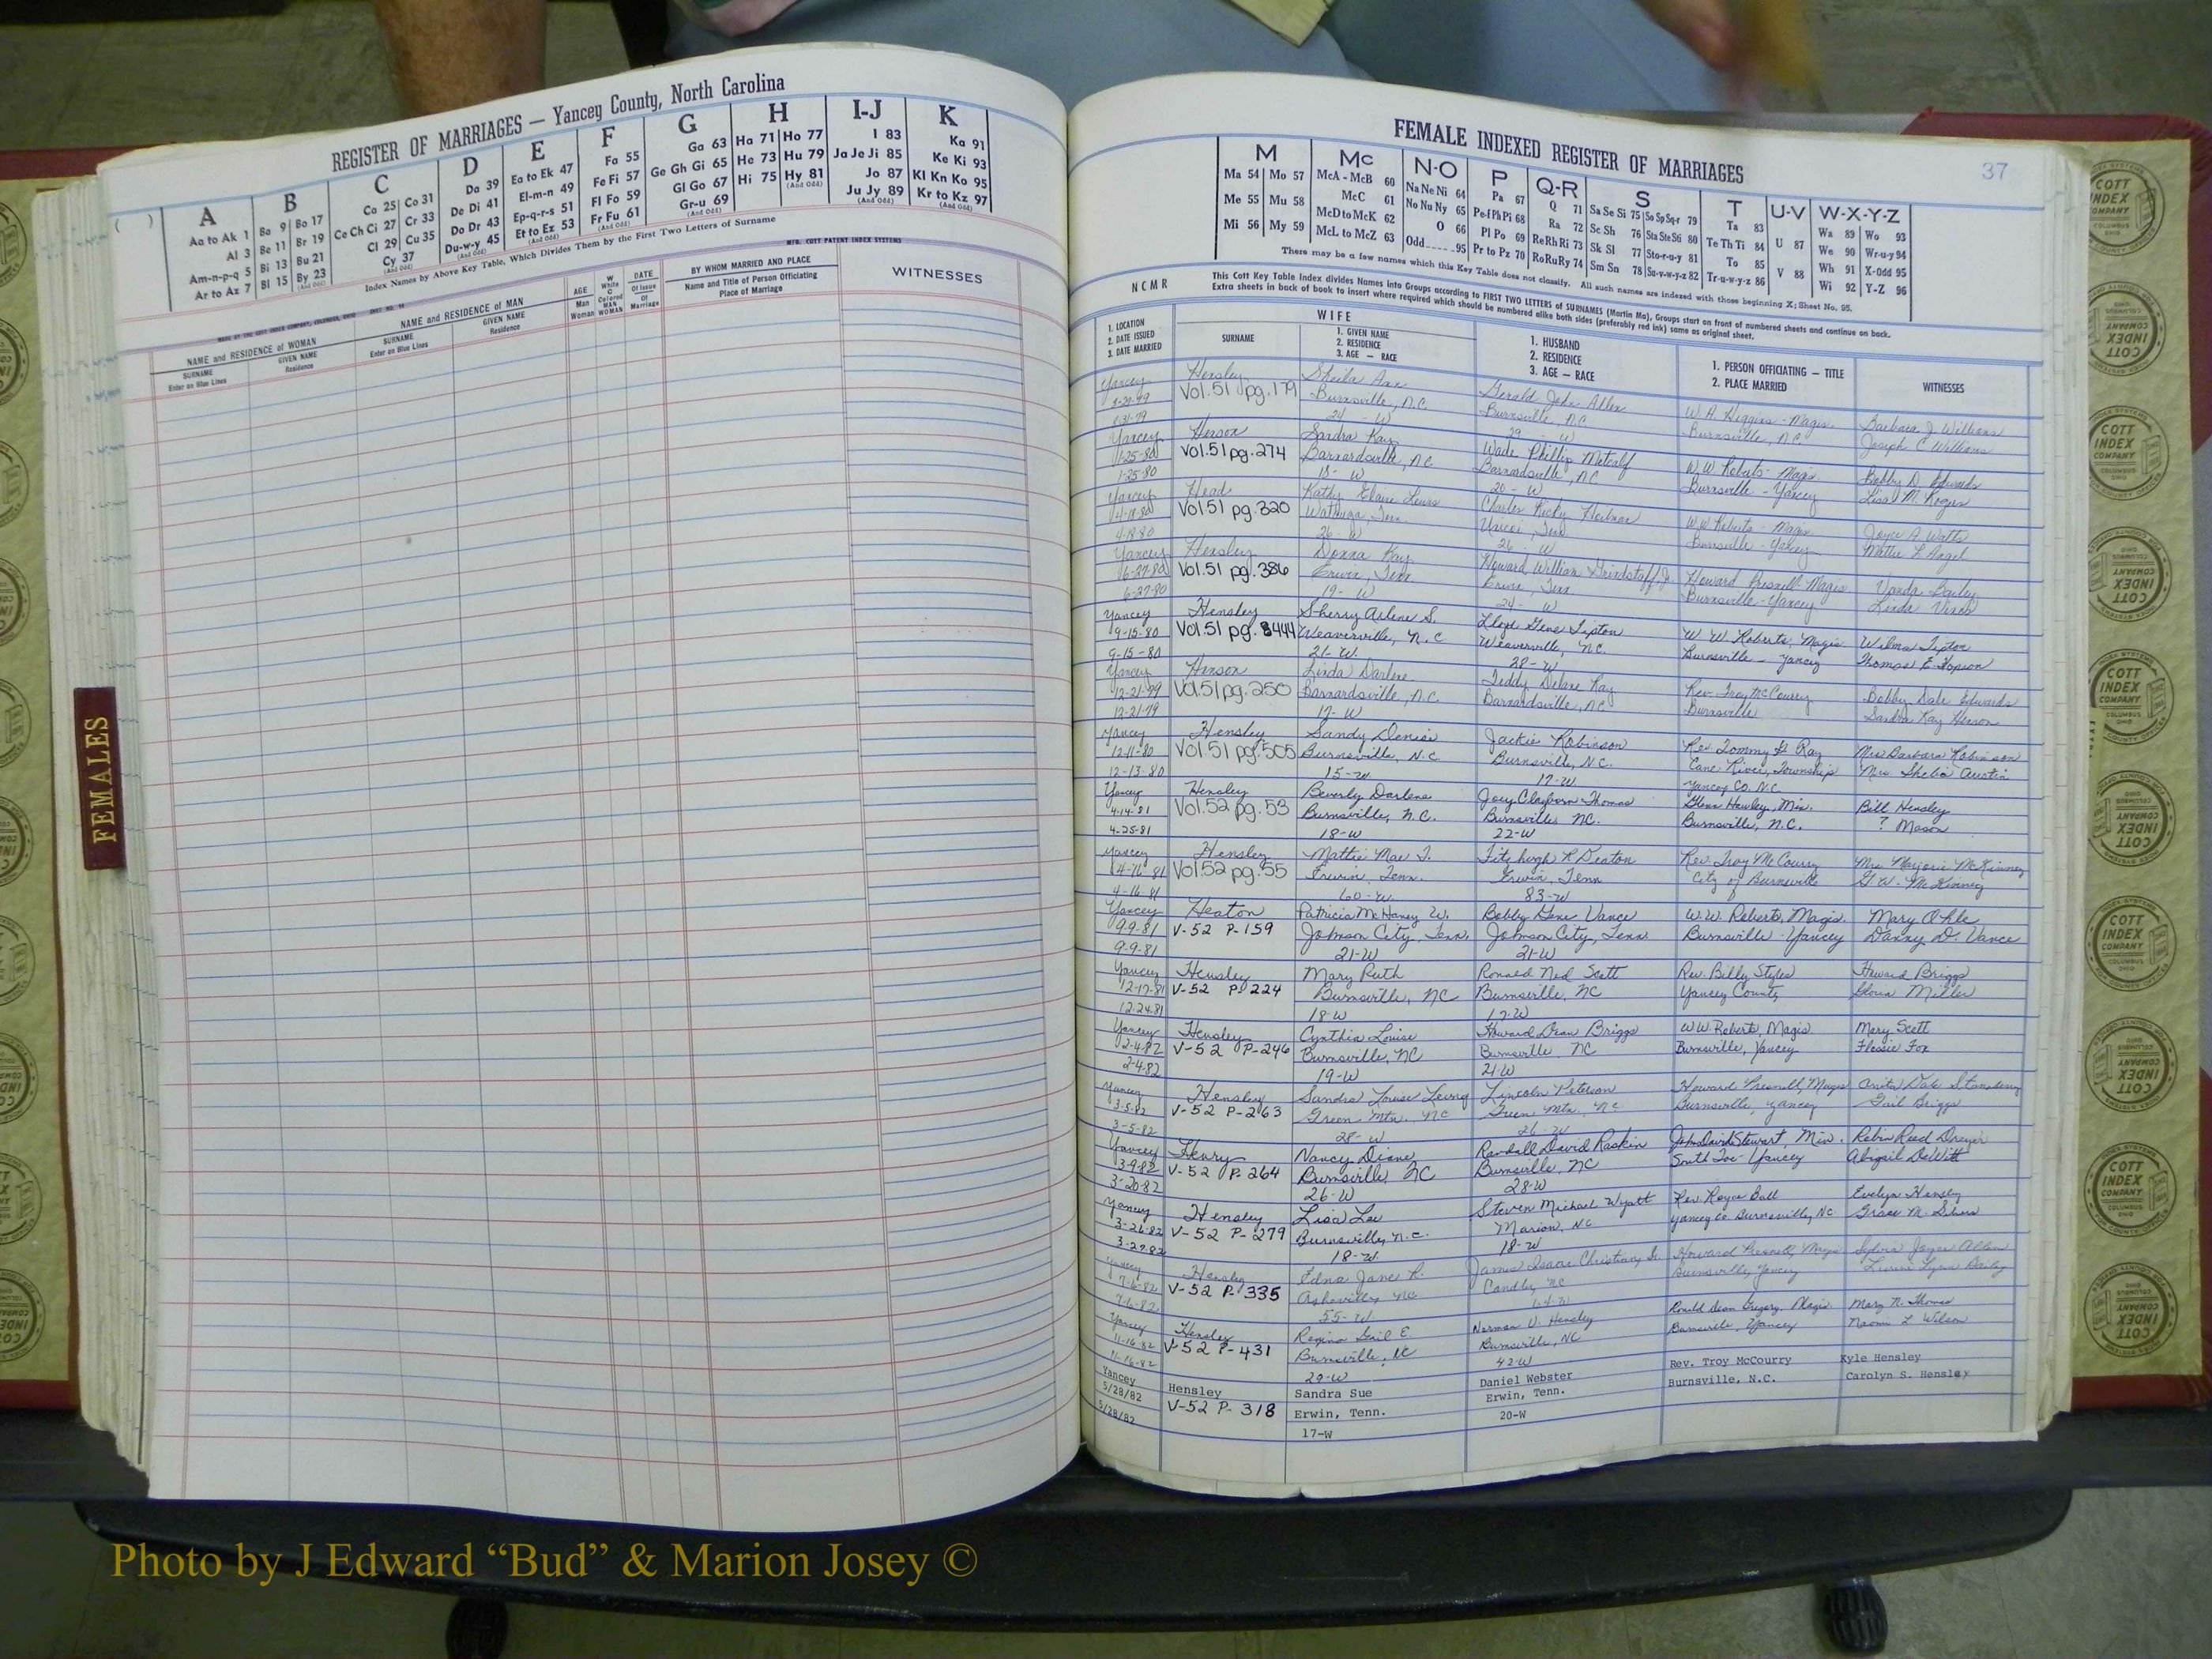 REGISTER OF MARRIAGES — Yancey County, North Carolina
A B C D E F G H I-J K
Aa to Ak 1
Al 3
Am-n-p-q 5
Ar to Az 7
Ba 9 Bo 17
Be 11 Br 19
Bi 13 Bu 21
Bl 15 By 23
(And Odd)
Ca 25 Co 31
Ce Ch Ci 27 Cr 33
Cl 29 Cu 35
Cy 37
(And Odd)
Da 39
De Di 41
Do Dr 43
Du-w-y 45
(And Odd)
Ea to Ek 47
El-m-n 49
Ep-q-r-s 51
Et to Ez 53
(And Odd)
Fa 55
Fe Fi 57
Fl Fo 59
Fr Fu 61
(And Odd)
Ga 63
Ge Gh Gi 65
Gl Go 67
Gr-u 69
(And Odd)
Ha 71 Ho 77
He 73 Hu 79
Hi 75 Hy 81
(And Odd)
I 83
Ja Je Ji 85
Jo 87
Ju Jy 89
(And Odd)
Ka 91
Ke Ki 93
Kl Kn Ko 95
Kr to Kz 97
(And Odd)
Index Names by Above Key Table, Which Divides Them by the First Two Letters of Surname
MFG. COTT PATENT INDEX SYSTEMS
NAME and RESIDENCE of WOMAN
SURNAME
Enter on Blue Lines
GIVEN NAME
Residence
NAME and RESIDENCE of MAN
SURNAME
Enter on Blue Lines
GIVEN NAME
Residence
AGE
Man
Woman
W
White
C
Colored
MAN
WOMAN
DATE
Of Issue
Of
Marriage
BY WHOM MARRIED AND PLACE
Name and Title of Person Officiating
Place of Marriage
WITNESSES
FEMALES
FEMALE INDEXED REGISTER OF MARRIAGES
37
M Mc N-O P Q-R S T U-V W-X-Y-Z
Ma 54 Mo 57
Me 55 Mu 58
Mi 56 My 59
McA - McB 60
McC 61
McD to McK 62
McL to McZ 63
Na Ne Ni 64
No Nu Ny 65
O 66
Odd 95
Pa 67
Pe-f Ph Pi 68
Pl Po 69
Pr to Pz 70
Q 71
Ra 72
Re Rh Ri 73
Ro Ru Ry 74
Sa Se Si 75 So Sp Sq-r 79
Sc Sh 76 Sta Ste Sti 80
Sk Sl 77 Sto-r-u-y 81
Sm Sn 78 Su-v-w-y-z 82
Ta 83
Te Th Ti 84
To 85
Tr-u-w-y-z 86
U 87
V 88
Wa 89 Wo 93
We 90 Wr-u-y 94
Wh 91 X-Odd 95
Wi 92 Y-Z 96
There may be a few names which this Key Table does not classify. All such names are indexed with those beginning X; Sheet No. 95.
NCMR
This Cott Key Table Index divides Names into Groups according to FIRST TWO LETTERS of SURNAMES (Martin Ma), Groups start on front of numbered sheets and continue on back.
Extra sheets in back of book to insert where required which should be numbered alike both sides (preferably red ink) same as original sheet.
1. LOCATION
2. DATE ISSUED
3. DATE MARRIED
WIFE
SURNAME
1. GIVEN NAME
2. RESIDENCE
3. AGE — RACE
1. HUSBAND
2. RESIDENCE
3. AGE — RACE
1. PERSON OFFICIATING — TITLE
2. PLACE MARRIED
WITNESSES
Yancey Hensley Sheila Ann Gerald John Allen W. A. Higgins - Magis. Barbara J. Williams
Vol. 51 pg. 179 Burnsville, N.C. Burnsville, NC Burnsville, N.C. Joseph C. Williams
24 - W 29 - W
Yancey Henson Sandra Kay Wade Phillip Metcalf W.W. Roberts - Magis. Bobby D. Edwards
1-25-80 Vol. 51 pg. 274 Barnardsville, N.C. Barnardsville, NC Burnsville - Yancey Lisa M. Rogers
1-25-80 18 - W 20 - W
Yancey Head Kathy Elaine Lewis Charles Ricky Heilman W.W. Roberts - Magis Joyce A. Watts
4-18-80 Vol 51 pg. 320 Watauga, Tenn. Unicoi, Tenn Burnsville - Yancey Mattie L. Angel
4-18-80 26 - W 26 - W
Yancey Hensley Donna Kay Howard William Grindstaff, Jr. Howard Presnell - Magis. Vanda Bailey
6-27-80 Vol. 51 pg. 386 Erwin, Tenn Erwin, Tenn Burnsville - Yancey Linda
6-27-80 19 - W 24 - W
Yancey Hensley Sherry Arlene S. Lloyd Gene Tipton W. W. Roberts, Magis. Wilma Tipton
9-15-80 Vol. 51 pg. 444 Weaverville, N.C Weaverville, N.C. Burnsville - Yancey Thomas E. Hopson
9-15-80 21 - W. 28 - W
Yancey Henson Linda Darlene Teddy Delane Ray Rev. Troy McCourry Bobby Dale Edwards
12-21-79 Vol. 51 pg. 250 Barnardsville, N.C. Barnardsville, NC Burnsville Sandra Kay Henson
12-21-79 17 - W
Yancey Hensley Sandy Denise Jackie Robinson Rev. Tommy R. Ray Mrs Barbara Robinson
12-11-80 Vol. 51 pg. 505 Burnsville, N.C. Burnsville, N.C. Cane River, Township Mrs. Shelia Austin
12-13-80 15 - W 17 - W Yancey Co. N.C.
Yancey Hensley Beverly Darlene Joey Clayborn Thomas Glenn Hawley, Min. Bill Hensley
4-14-81 Vol. 52 pg. 53 Burnsville, N.C. Burnsville, NC. Burnsville, N.C. ? Mason
4-25-81 18-W 22-W
Yancey Hensley Mattie Mae T. Fitzhugh R Deaton Rev. Troy McCourry Mrs. Marjorie McKinney
4-16-81 Vol. 52 pg. 55 Erwin, Tenn. Erwin, Tenn City of Burnsville G.W. McKinney
4-16-81 60-W 83-W
Yancey Heaton Patricia McHaney W. Bobby Gene Vance W.W. Roberts, Magis. Mary Ohle
9-9-81 V-52 P-159 Johnson City, Tenn. Johnson City, Tenn Burnsville - Yancey Danny D. Vance
9-9-81 21-W 21-W
Yancey Hensley Mary Ruth Ronald Ned Scott Rev. Billy Styles Howard Briggs
12-17-81 V-52 P-224 Burnsville, NC Burnsville, NC Yancey County Gloria Miller
12-24-81 18-W 17-W
Yancey Hensley Cynthia Louise Howard Dean Briggs W.W. Roberts, Magis Mary Scott
2-4-82 V-52 P-246 Burnsville, NC Burnsville, NC Burnsville, Yancey Flossie Fox
2-4-82 19-W 21-W
Yancey Hensley Sandra Louise Lyncoln Peterson Howard Presnell, Magis Anita Dale Stansberry
3-5-82 V-52 P-263 Green Mtn., NC Green Mtn., NC Burnsville, Yancey Gail Briggs
3-5-82 28-W 26-W
Yancey Henry Nancy Diane Randall David Raskin John David Stewart, Min. Robin Reed Dreyer
3-9-82 V-52 P-264 Burnsville, NC Burnsville, NC South Toe - Yancey Abigail DeWitt
3-20-82 26-W 28-W
Yancey Hensley Lisa Lou Steven Michael Wyatt Rev. Royce Ball Evelyn Hensley
3-26-82 V-52 P-279 Burnsville, N.C. Marion, NC Yancey Co. Burnsville, NC Grace M.
3-27-82 18-W 18-W
Yancey Hensley Edna Jane R. James Isaac Christian, Sr. Howard Presnell, Magis Sylvia Joyce Allen
7-6-82 V-52 P-335 Asheville, NC Candler, NC Burnsville, Yancey Lynn Bailey
7-6-82 55-W 64-W
Yancey Hensley Regina Gail E. Norman V. Hensley Ronald Dean Gregory, Magis Mary N. Thomas
11-16-82 V-52 P-431 Burnsville, NC Burnsville, NC Burnsville, Yancey Naomi L Wilson
11-16-82 20-W 42-W
Yancey Hensley Sandra Sue Daniel Webster Rev. Troy McCourry Kyle Hensley
5/28/82 V-52 P-318 Erwin, Tenn. Erwin, Tenn. Burnsville, N.C. Carolyn S. Hensley
5/28/82 17-W 20-W
COTT
INDEX
COMPANY
COLUMBUS
OHIO
Photo by J Edward “Bud” & Marion Josey ©